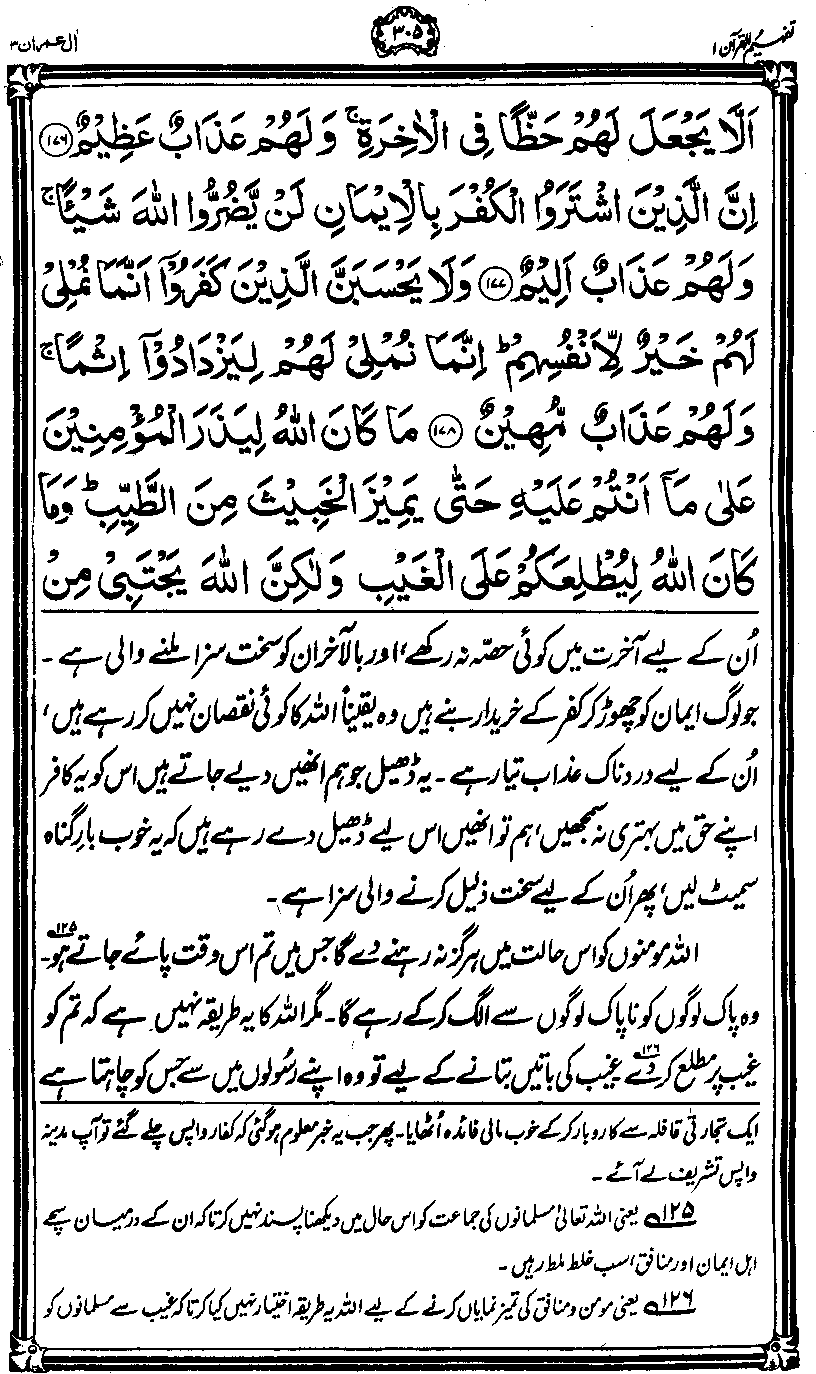 تفہیم القرآن ۱
۳۰۵
اٰل عمران ۳
اَلَّا يَجْعَلَ لَهُمْ حَظًّا فِى الْاٰخِرَةِ ۚ وَلَهُمْ عَذَابٌ عَظِيْمٌ ﴿۱۷۶﴾
اِنَّ الَّذِيْنَ اشْتَرَوُا الْكُفْرَ بِالْاِيْمَانِ لَنْ يَّضُرُّوا اللّٰهَ شَيْـًٔا ۚ
وَلَهُمْ عَذَابٌ اَلِيْمٌ ﴿۱۷۷﴾ وَلَا يَحْسَبَنَّ الَّذِيْنَ كَفَرُوْۤا اَنَّمَا نُمْلِىْ
لَهُمْ خَيْرٌ لِّاَنْفُسِهِمْ ؕ اِنَّمَا نُمْلِىْ لَهُمْ لِيَزْدَادُوْۤا اِثْمًا ۚ
وَلَهُمْ عَذَابٌ مُّهِيْنٌ ﴿۱۷۸﴾ مَا كَانَ اللّٰهُ لِيَذَرَ الْمُؤْمِنِيْنَ
عَلٰى مَاۤ اَنْتُمْ عَلَيْهِ حَتّٰى يَمِيْزَ الْخَبِيْثَ مِنَ الطَّيِّبِ ؕ وَمَا
كَانَ اللّٰهُ لِيُطْلِعَكُمْ عَلَى الْغَيْبِ وَلٰكِنَّ اللّٰهَ يَجْتَبِىْ مِنْ
اُن کے لیے آخرت میں کوئی حصّہ نہ رکھے، اور بالآخر ان کو سخت سزا ملنے والی ہے۔
جو لوگ ایمان کو چھوڑ کر کفر کے خریدار بنے ہیں وہ یقیناً اللہ کا کوئی نقصان نہیں کر رہے ہیں،
اُن کے لیے دردناک عذاب تیار ہے۔ یہ ڈھیل جو ہم انھیں دیے جاتے ہیں اس کو یہ کافر
اپنے حق میں بہتری نہ سمجھیں، ہم تو انھیں اس لیے ڈھیل دے رہے ہیں کہ یہ خوب بارِ گناہ
سمیٹ لیں، پھر اُن کے لیے سخت ذلیل کرنے والی سزا ہے۔
اللہ مومنوں کو اس حالت میں ہرگز نہ رہنے دے گا جس میں تم اس وقت پائے جاتے ہو۱۲۵۔
وہ پاک لوگوں کو ناپاک لوگوں سے الگ کر کے رہے گا۔ مگر اللہ کا یہ طریقہ نہیں ہے کہ تم کو
غیب پر مطلع کر دے۱۲۶ غیب کی باتیں بتانے کے لیے تو وہ اپنے رسُولوں میں سے جس کو چاہتا ہے
ایک تجارتی قافلہ سے کاروبار کر کے خوب مالی فائدہ اُٹھایا۔ پھر جب یہ خبر معلوم ہو گئی کہ کفار واپس چلے گئے تو آپ مدینہ
واپس تشریف لے آئے۔
۱۲۵ یعنی اللہ تعالیٰ مسلمانوں کی جماعت کو اس حال میں دیکھنا پسند نہیں کرتا کہ ان کے درمیان سچے
اہل ایمان اور منافق، سب خلط ملط رہیں۔
۱۲۶ یعنی مومن و منافق کی تمیز نمایاں کرنے کے لیے اللہ یہ طریقہ اختیار نہیں کیا کرتا کہ غیب سے مسلمانوں کو